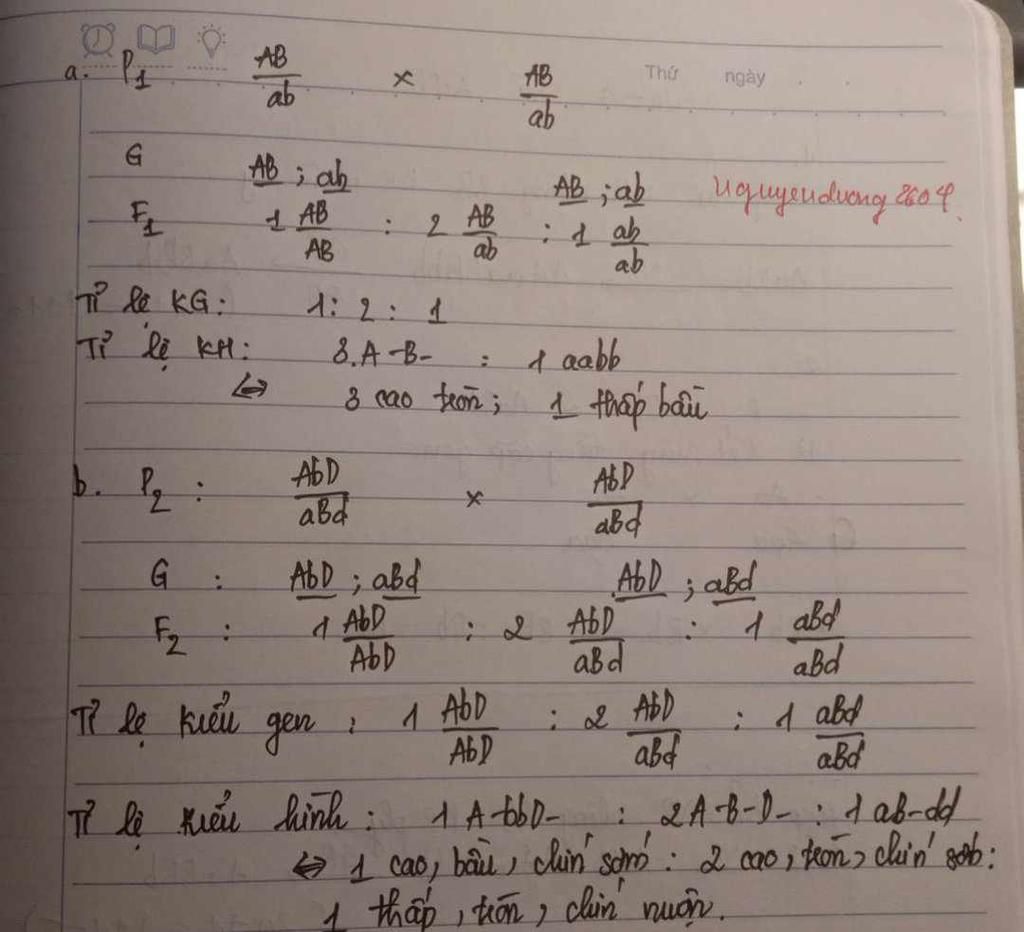 Thứ ngày . .
a. P1 AB/ab × AB/ab
G AB ; ab AB ; ab
Nguyenduong2604
F1 1 AB/AB : 2 AB/ab : 1 ab/ab
Tỉ lệ KG: 1 : 2 : 1
Tỉ lệ KH: 3.A-B- : 1 aabb
⇔ 3 cao tròn; 1 thấp bầu
b. P2 : AbD/aBd × AbD/aBd
G : AbD ; aBd AbD ; aBd
F2 : 1 AbD/AbD : 2 AbD/aBd : 1 aBd/aBd
Tỉ lệ kiểu gen : 1 AbD/AbD : 2 AbD/aBd : 1 aBd/aBd
Tỉ lệ kiểu hình : 1 A-bbD- : 2A-B-D- : 1 aB-dd
⇔ 1 cao, bầu, chín sớm : 2 cao, tròn, chín sớm :
1 thấp, tròn, chín muộn.